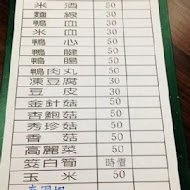 米酒 50
麵線 50
鴨血 30
米血 30
鴨心 50
鴨腱 50
鴨腸 50
鴨肉丸 50
凍豆腐 30
豆皮 30
金針菇 50
杏鮑菇 50
秀珍菇 50
香菇 50
高麗菜 50
筊白筍 時價
玉米 50